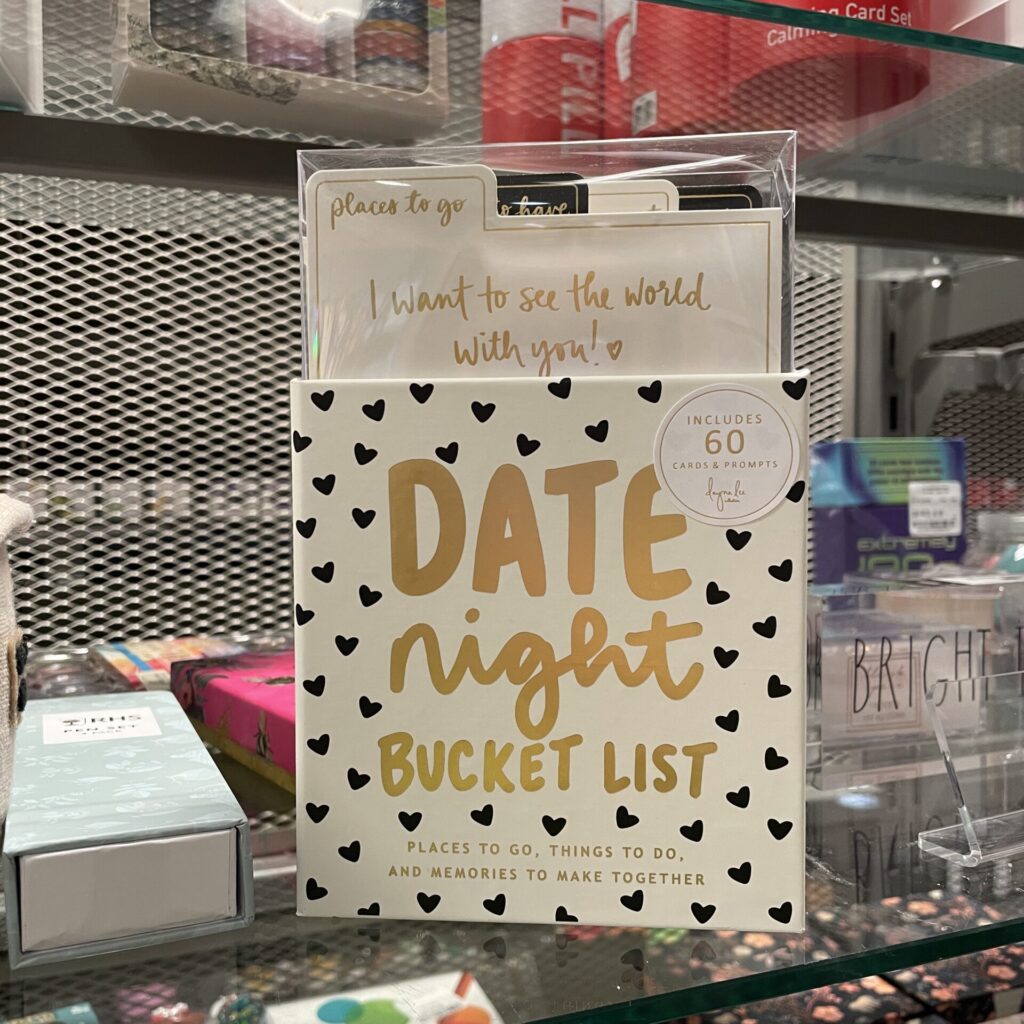 ng Card Set
Calming
places to go
to have
I want to see the world
with you!
INCLUDES
60
CARDS & PROMPTS
DATE
night
BUCKET LIST
PLACES TO GO, THINGS TO DO,
AND MEMORIES TO MAKE TOGETHER
RHS
PEN SET
BRIGHT